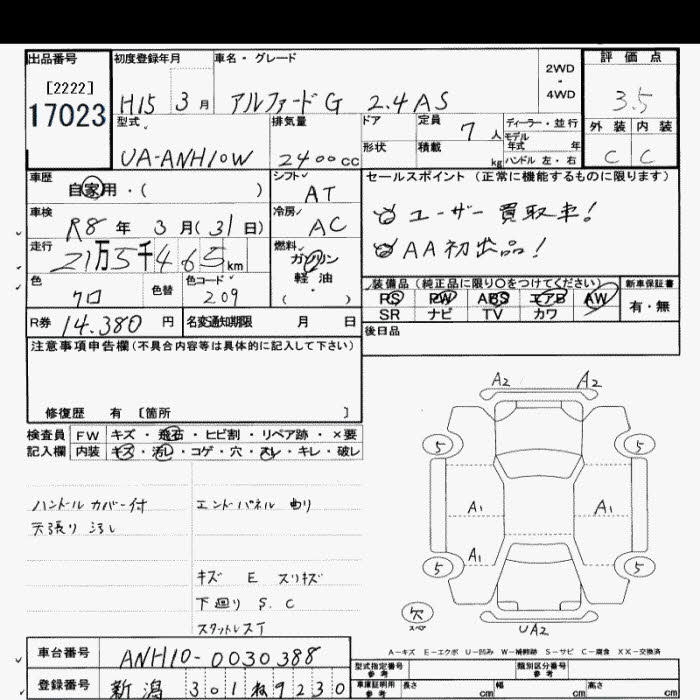 出品番号
[2222]
17023
初度登録年月
H15 3月
車名・グレード
アルファードG 2.4AS
2WD
・
4WD
評価点
3.5
型式
UA-ANH10W
排気量
2400cc
ドア
形状
定員 7人
積載 kg
ディーラー・並行
モデル
年式 年
ハンドル 左・右
外装 内装
C C
車歴
自家用・( )
シフト
AT
セールスポイント (正常に機能するものに限ります)
ユーザー買取車!
AA初出品!
車検
R8年 3月(31日)
冷房
AC
走行
21万5千465km
燃料
ガソリン
軽油
( )
色
クロ
色替
色コード
209
装備品(純正品に限り○をつけてください)
PS PW ABS エアB AW
SR ナビ TV カワ
新車保証書
有・無
R券 14.380円
名変通知期限 月 日
後日品
注意事項申告欄(不具合内容等は具体的に記入して下さい)
修復歴 有 〔箇所 〕
検査員
記入欄
FW キズ・飛石・ヒビ割・リペア跡・×要
内装 キズ・汚レ・コゲ・穴・スレ・キレ・破レ
ハンドルカバー付
天張り汚れ
エンドパネル曲り
キズ E スリキズ
下廻り S.C
スタットレスT
A2 A2
5 5
A1 A1
A1
5 5
欠
スペア
UA2
A-キズ E-エクボ U-凹み W-補修跡 S-サビ C-腐食 XX-交換済
車台番号 ANH10-0030388
登録番号 新潟 301 ね 9230
型式指定番号
参考
類別区分番号
参考
車庫証明用
参考
長さ cm 幅 cm 高さ cm